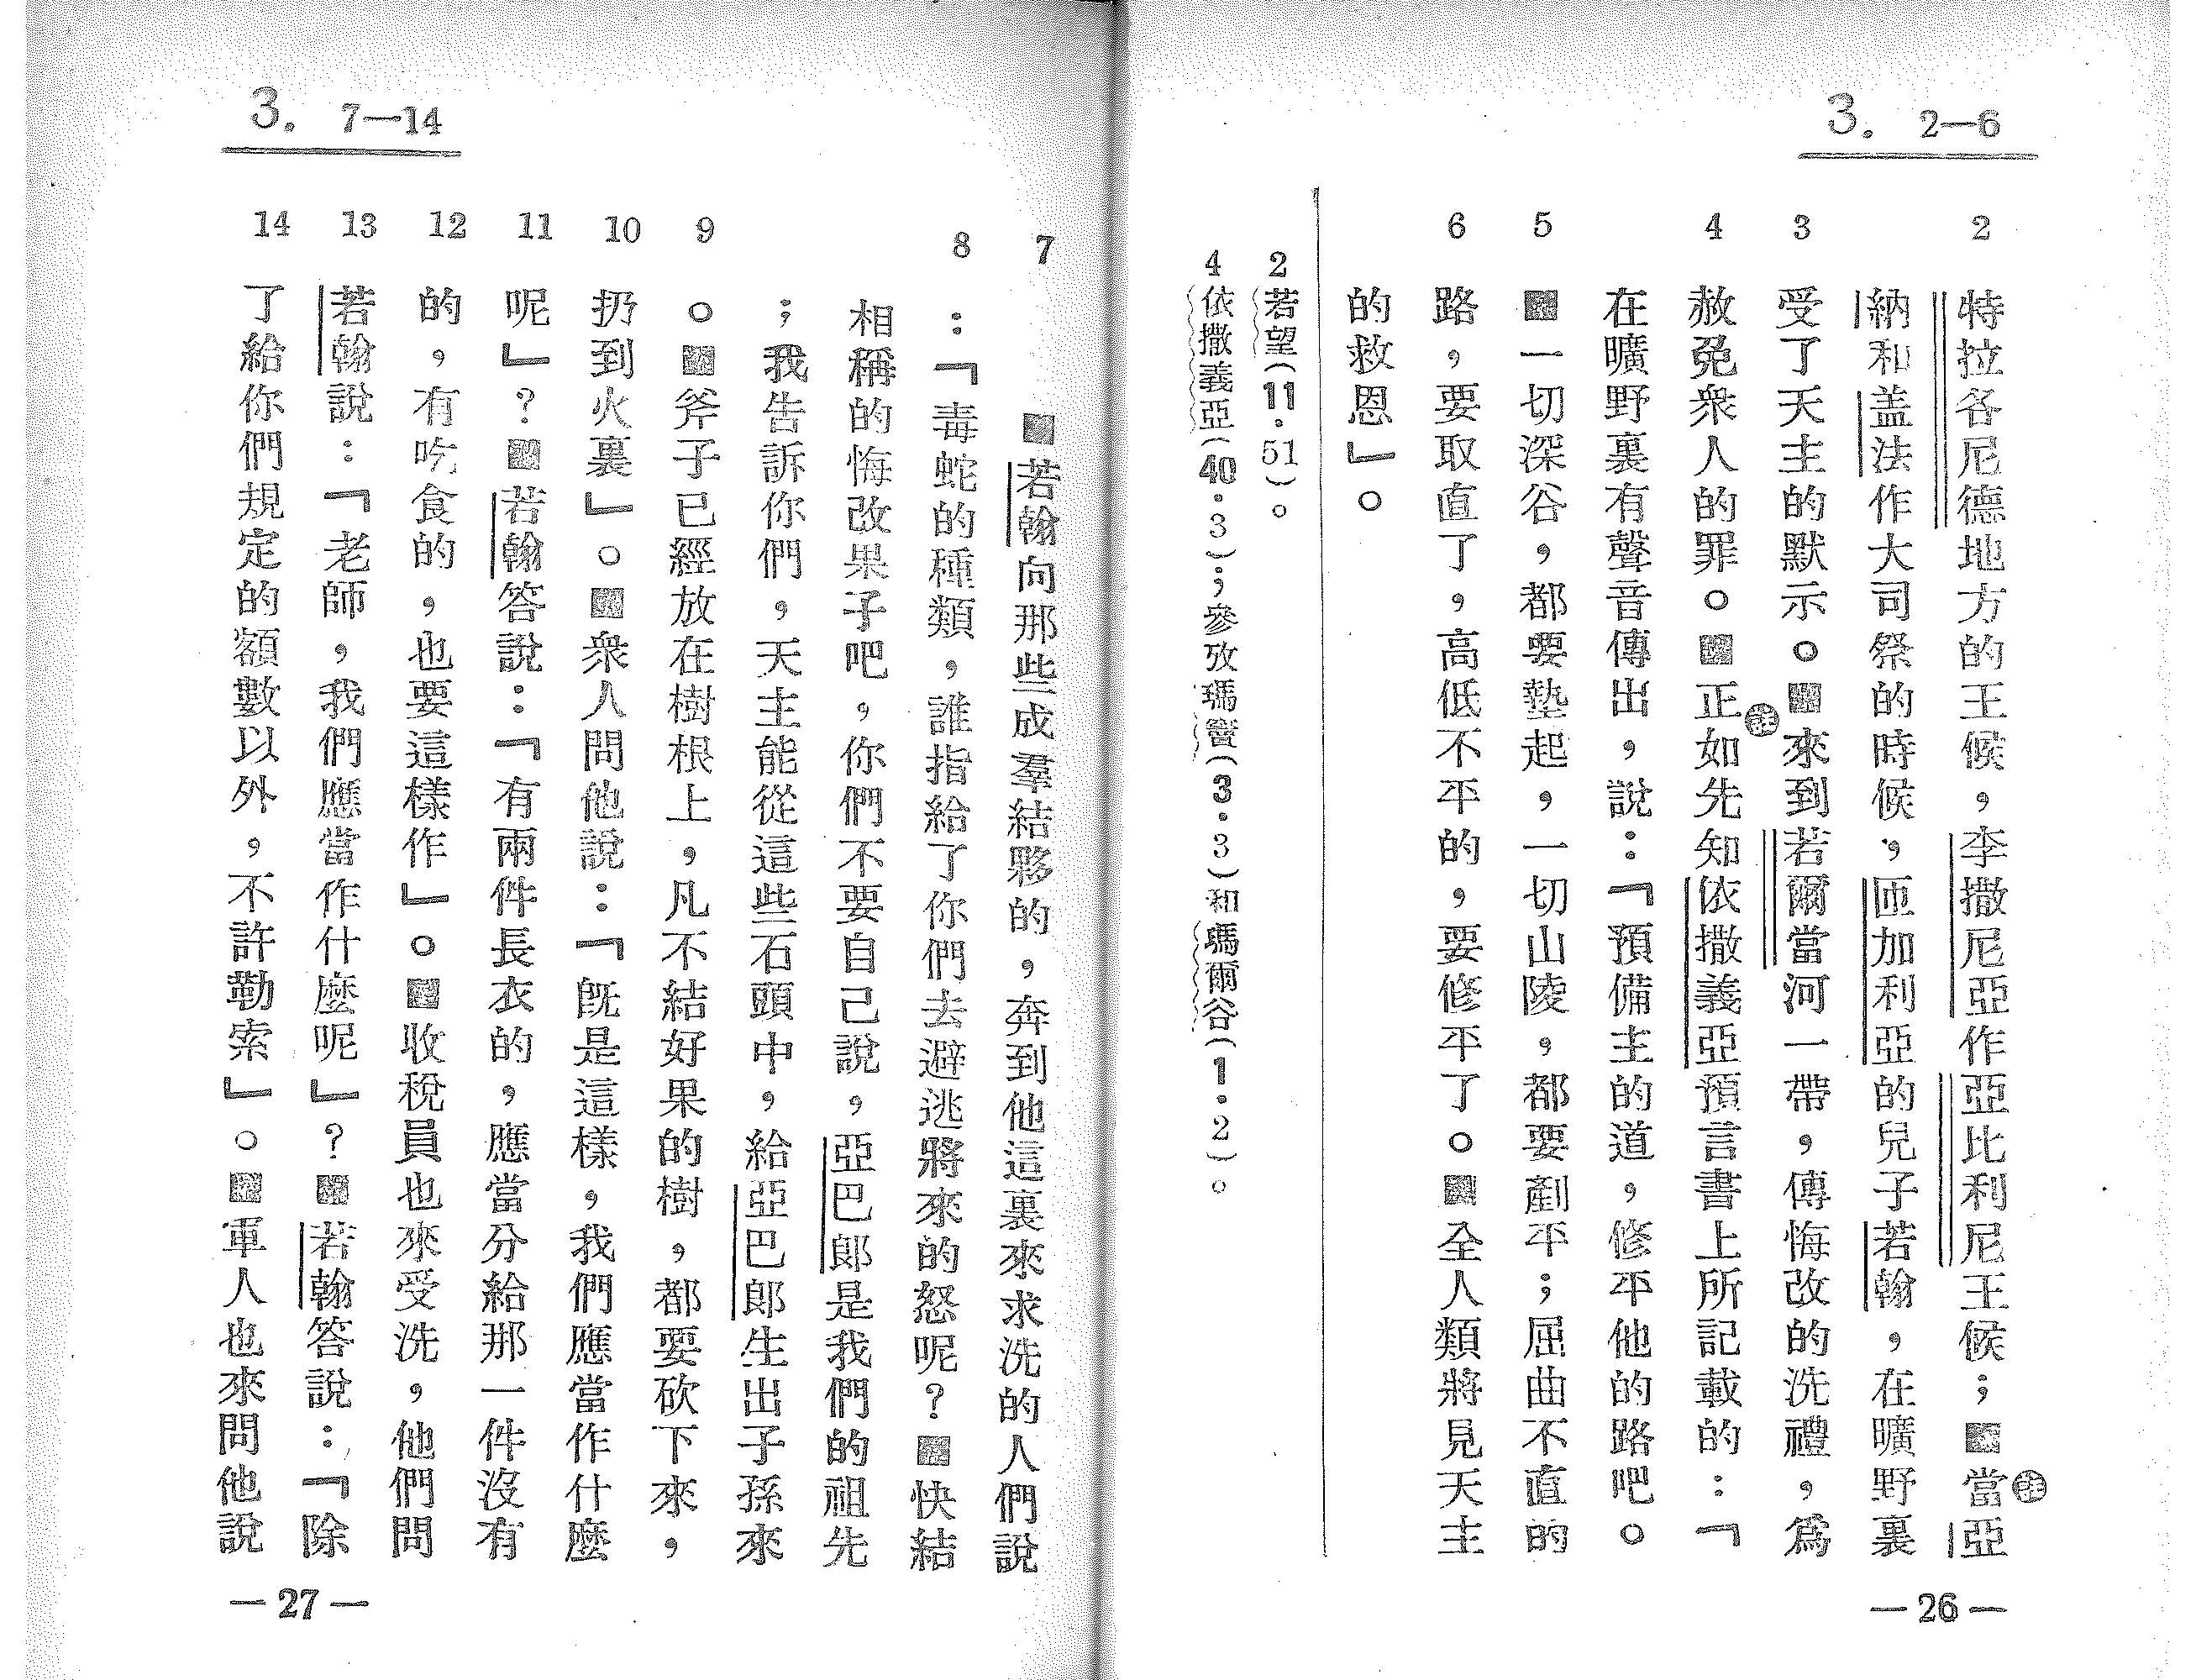 3. 2—6
2
特拉各尼德地方的王候，李撒尼亞作亞比利尼王候；■當亞
納和盖法作大司祭的時候，匝加利亞的兒子若翰，在曠野裏
3
受了天主的默示。■來到若爾當河一帶，傳悔改的洗禮，爲
4
赦免衆人的罪。■正如先知依撒義亞預言書上所記載的：「
在曠野裏有聲音傳出，說：「預備主的道，修平他的路吧。
5
■一切深谷，都要墊起，一切山陵，都要剷平；屈曲不直的
6
路，要取直了，高低不平的，要修平了。■全人類將見天主
的救恩」。
2 若望(11·51)。
4 依撒義亞(40·3)；參攷瑪竇(3·3)和瑪爾谷(1·2)。
註
註
—26—
3. 7—14
7
■若翰向那些成羣結夥的，奔到他這裏來求洗的人們說
8
：「毒蛇的種類，誰指給了你們去避逃將來的怒呢？■快結
相稱的悔改果子吧，你們不要自己說，亞巴郎是我們的祖先
；我告訴你們，天主能從這些石頭中，給亞巴郎生出子孫來
9
。■斧子已經放在樹根上，凡不結好果的樹，都要砍下來，
10
扔到火裏」。■衆人問他說：「旣是這樣，我們應當作什麼
11
呢」？■若翰答說：「有兩件長衣的，應當分給那一件沒有
12
的，有吃食的，也要這樣作」。■收稅員也來受洗，他們問
13
若翰說：「老師，我們應當作什麼呢」？■若翰答說：「除
14
了給你們規定的額數以外，不許勒索」。■軍人也來問他說
—27—